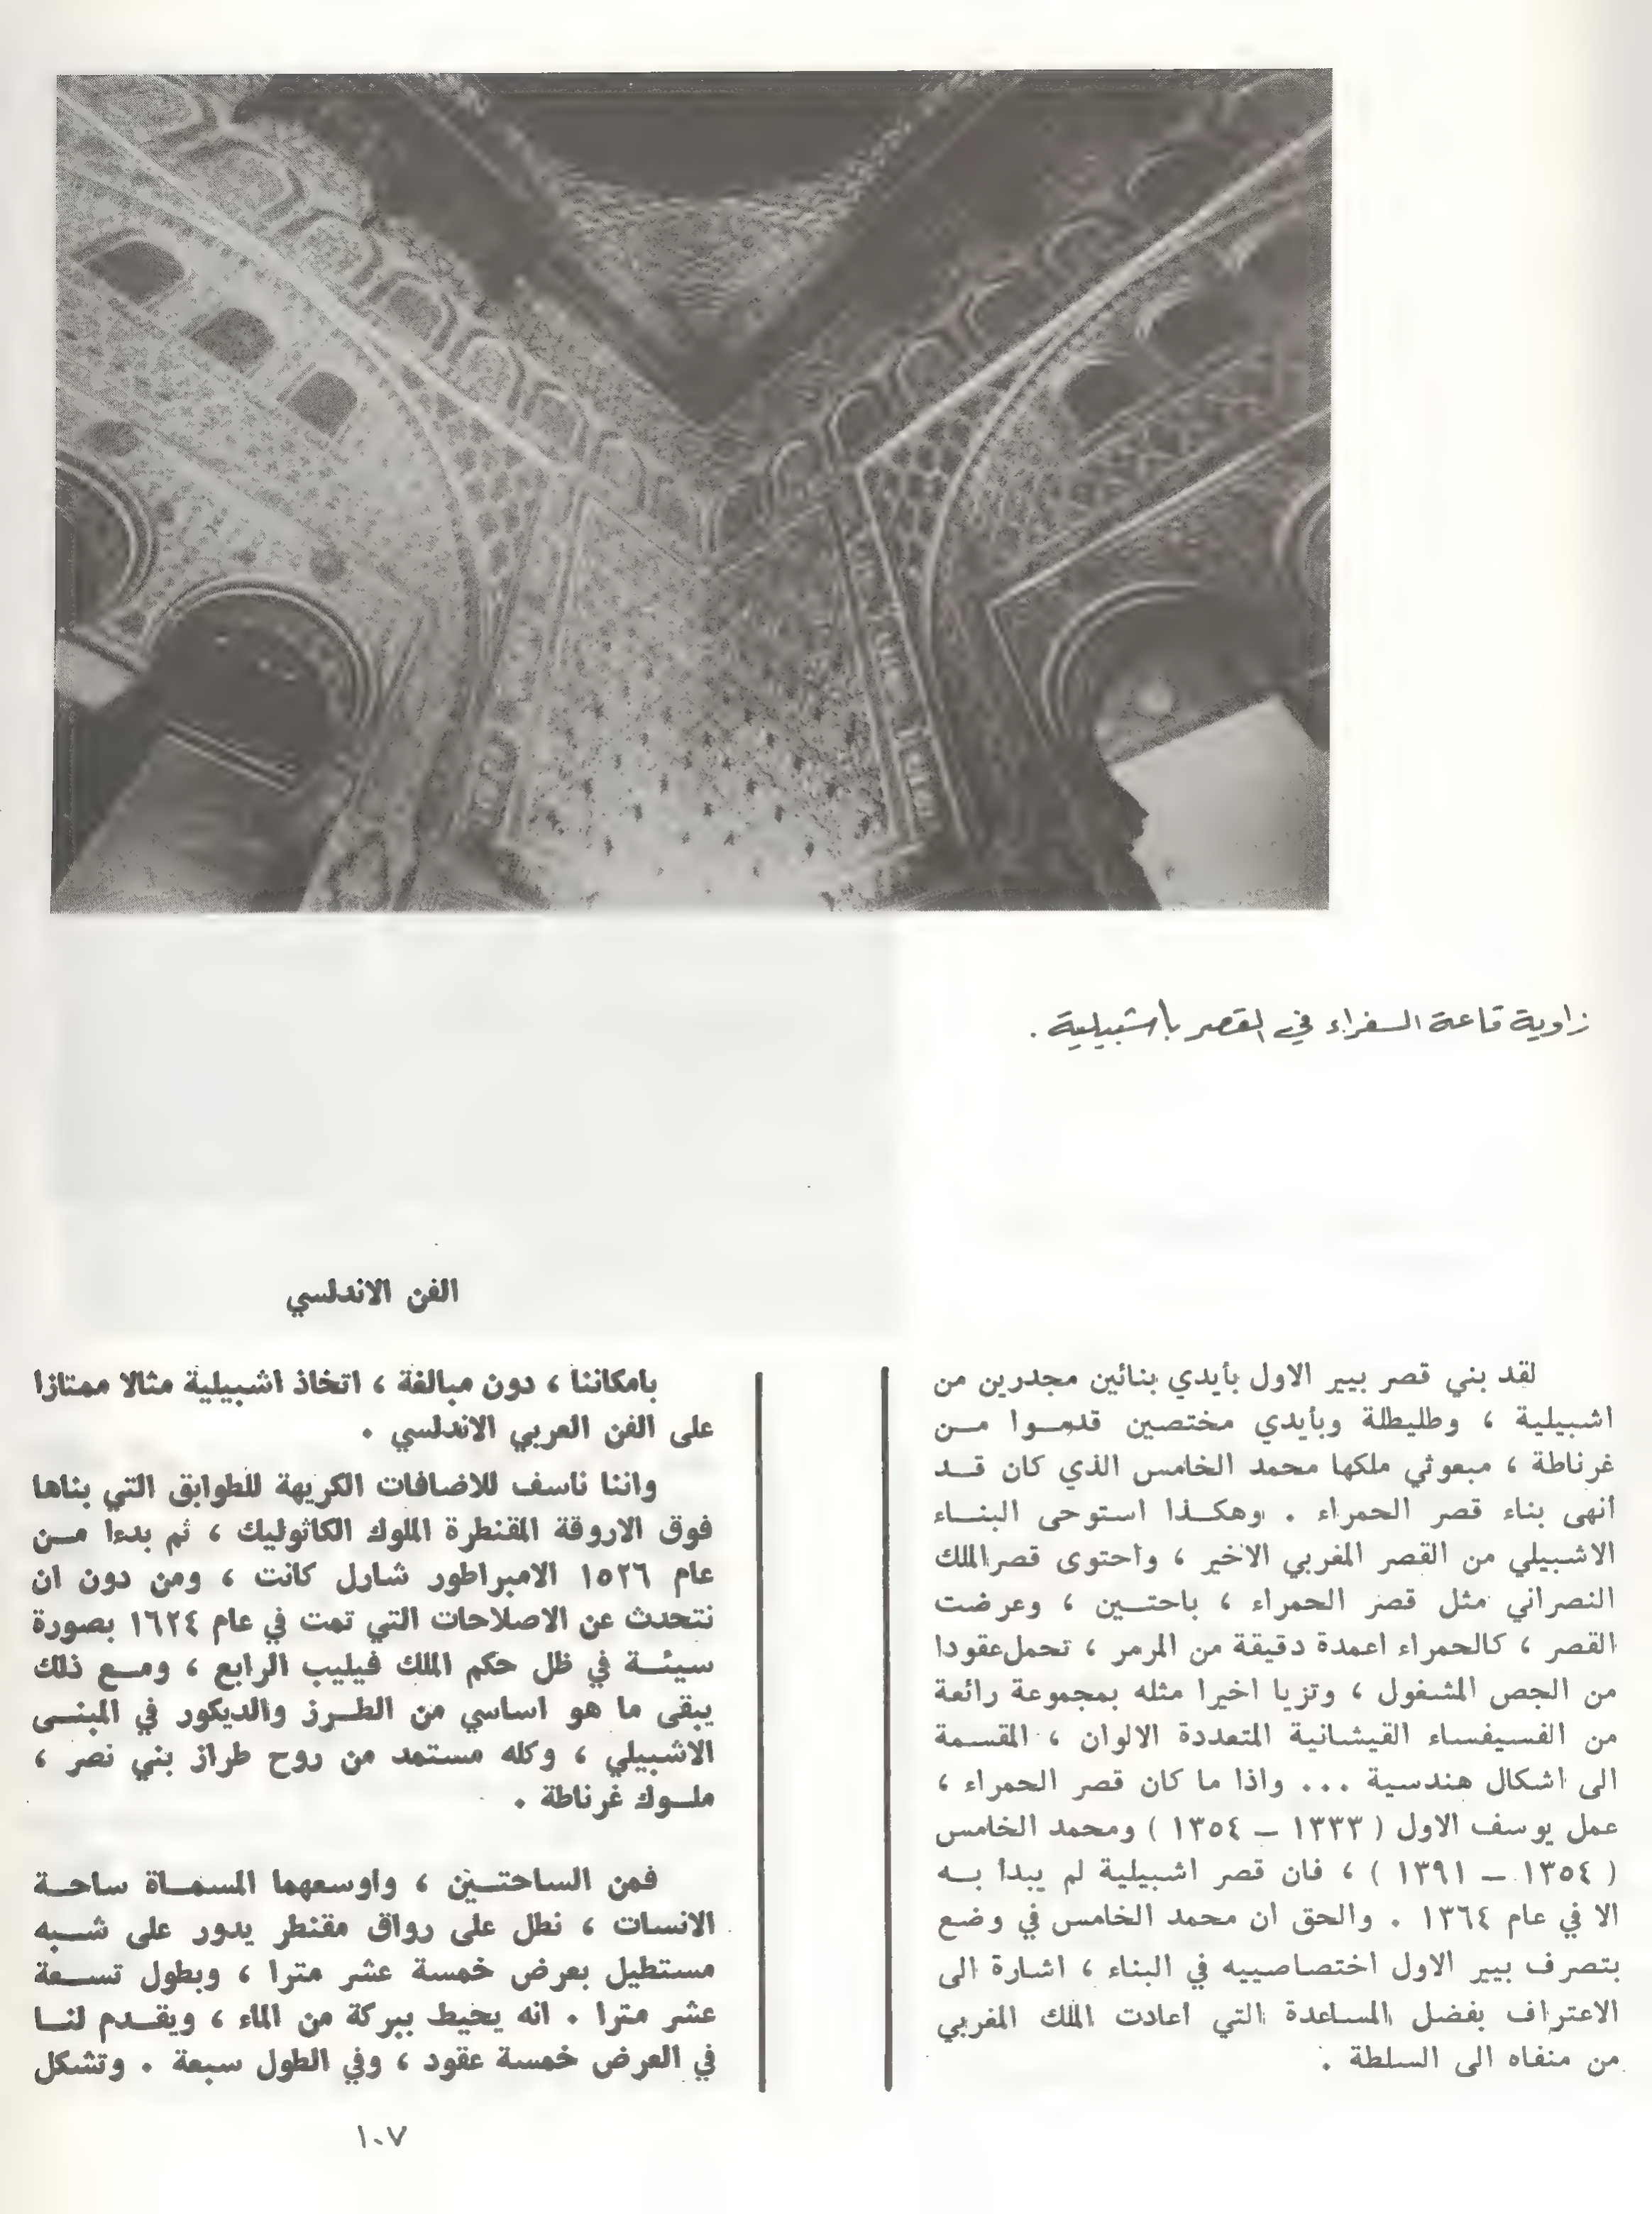 زاوية قاعة السفراء في القصر باشبيلية .
لقد بني قصر بيير الاول بأيدي بنائين مجدرين من
اشبيلية ، وطليطلة وبأيدي مختصين قدموا مـن
غرناطة ، مبعوثي ملكها محمد الخامس الذي كان قـد
أنهى بناء قصر الحمراء . وهكـذا استوحى البنـاء
الاشبيلي من القصر المغربي الاخير ، واحتوى قصر الملك
النصراني مثل قصر الحمراء ، باحتـين ، وعرضت
القصر ، كالحمراء اعمدة دقيقة من المرمر ، تحمل عقودا
من الجص المشغول ، وتزيا اخيرا مثله بمجموعة رائعة
من الفسيفساء القيشانية المتعددة الالوان ، المقسمة
الى اشكال هندسية ... واذا ما كان قصر الحمراء ،
عمل يوسف الاول ( ١٣٣٣ – ١٣٥٤ ) ومحمد الخامس
( ١٣٥٤ – ١٣٩١ ) ، فان قصر اشبيلية لم يبدأ بـه
الا في عام ١٣٦٤ . والحق ان محمد الخامس في وضع
بتصرف بيير الاول اختصاصييه في البناء ، اشارة الى
الاعتراف بفضل المساعدة التي اعادت الملك المغربي
من منفاه الى السلطة .
الفن الاندلسي
بامكاننا ، دون مبالغة ، اتخاذ اشبيلية مثالا ممتازا
على الفن العربي الاندلسي .
واننا ناسف للاضافات الكريهة للطوابق التي بناها
فوق الاروقة المقنطرة الملوك الكاثوليك ، ثم بدءا مـن
عام ١٥٢٦ الامبراطور شارل كانت ، ومن دون ان
نتحدث عن الاصلاحات التي تمت في عام ١٦٢٤ بصورة
سيئـة في ظل حكم الملك فيليب الرابع ، ومـع ذلك
يبقى ما هو اساسي من الطـرز والديكور في المبنـى
الاشبيلي ، وكله مستمد من روح طراز بني نصر ،
ملـوك غرناطة .
فمن الساحتـين ، واوسعهما المسمـاة ساحـة
الانسات ، نطل على رواق مقنطر يدور على شـبه
مستطيل بعرض خمسة عشر مترا ، وبطول تسـعة
عشر مترا . انه يحيط ببركة من الماء ، ويقـدم لنـا
في العرض خمسة عقود ، وفي الطول سبعة . وتشكل
١٠٧